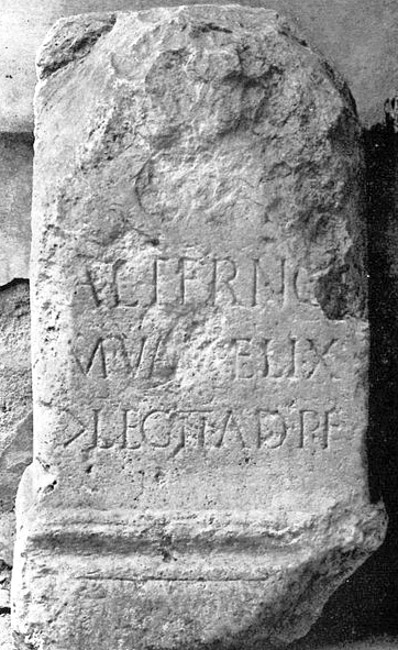 AETERNO
M VA ELIX
> LEG II AD P F